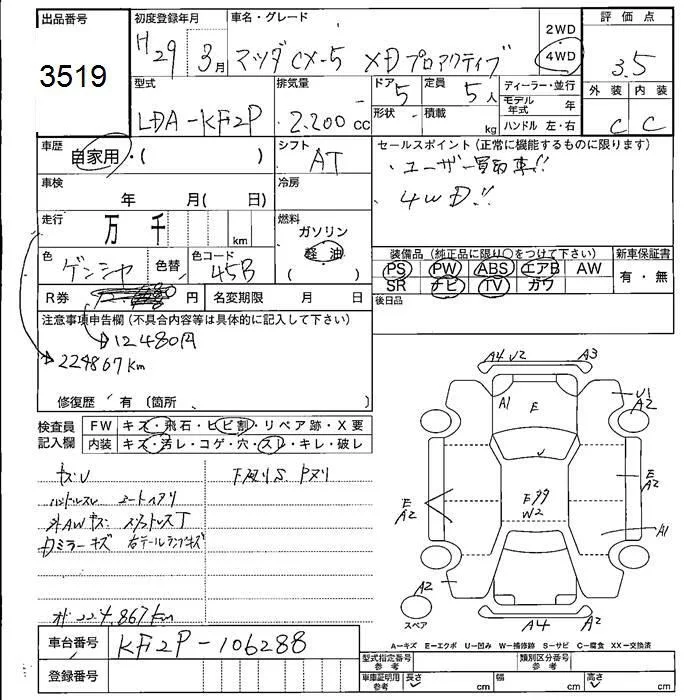 出品番号
3519
初度登録年月
H29 3月
車名・グレード
マツダCX-5 XDプロアクティブ
2WD
4WD
評価点
3.5
外装 内装
C C
型式
LDA-KF2P
排気量
2.200 cc
ドア 5
形状
定員 5人
積載 kg
ディーラー・並行
モデル年式 年
ハンドル 左・右
車歴
自家用・( )
シフト
AT
セールスポイント(正常に機能するものに限ります)
・ユーザー買取車!!
4WD!!
車検
年 月( 日)
冷房
走行
万 千 km
燃料
ガソリン
軽油
( )
色
色替
色コード
45B
装備品(純正品に限り○をつけて下さい)
PS PW ABS エアB AW
SR ナビ TV ガワ
新車保証書
有・無
R券 円
名変期限 月 日
後日品
注意事項申告欄(不具合内容等は具体的に記入して下さい)
12480円
224867km
修復歴 有 (箇所 )
検査員記入欄
FW キズ・飛石・ヒビ割・リペア跡・X要
内装 キズ・汚レ・コゲ・穴・スレ・キレ・破レ
キズU
下廻りS Pヌリ
ハンドルスレ シートヘタリ
外AWキズ
Dミラーキズ 右テールランプキズ
224,867km
A4 U2 A3
A1 E
U1
A2
U
E
A2
E
A2
W2
A1
A2
スペア
A4 A2
A-キズ E-エクボ U-凹み W-補修跡 S-サビ C-腐食 XX-交換済
車台番号
KF2P-106288
登録番号
型式指定番号 参考
類別区分番号 参考
車庫証明用 参考
長さ cm
幅 cm
高さ cm